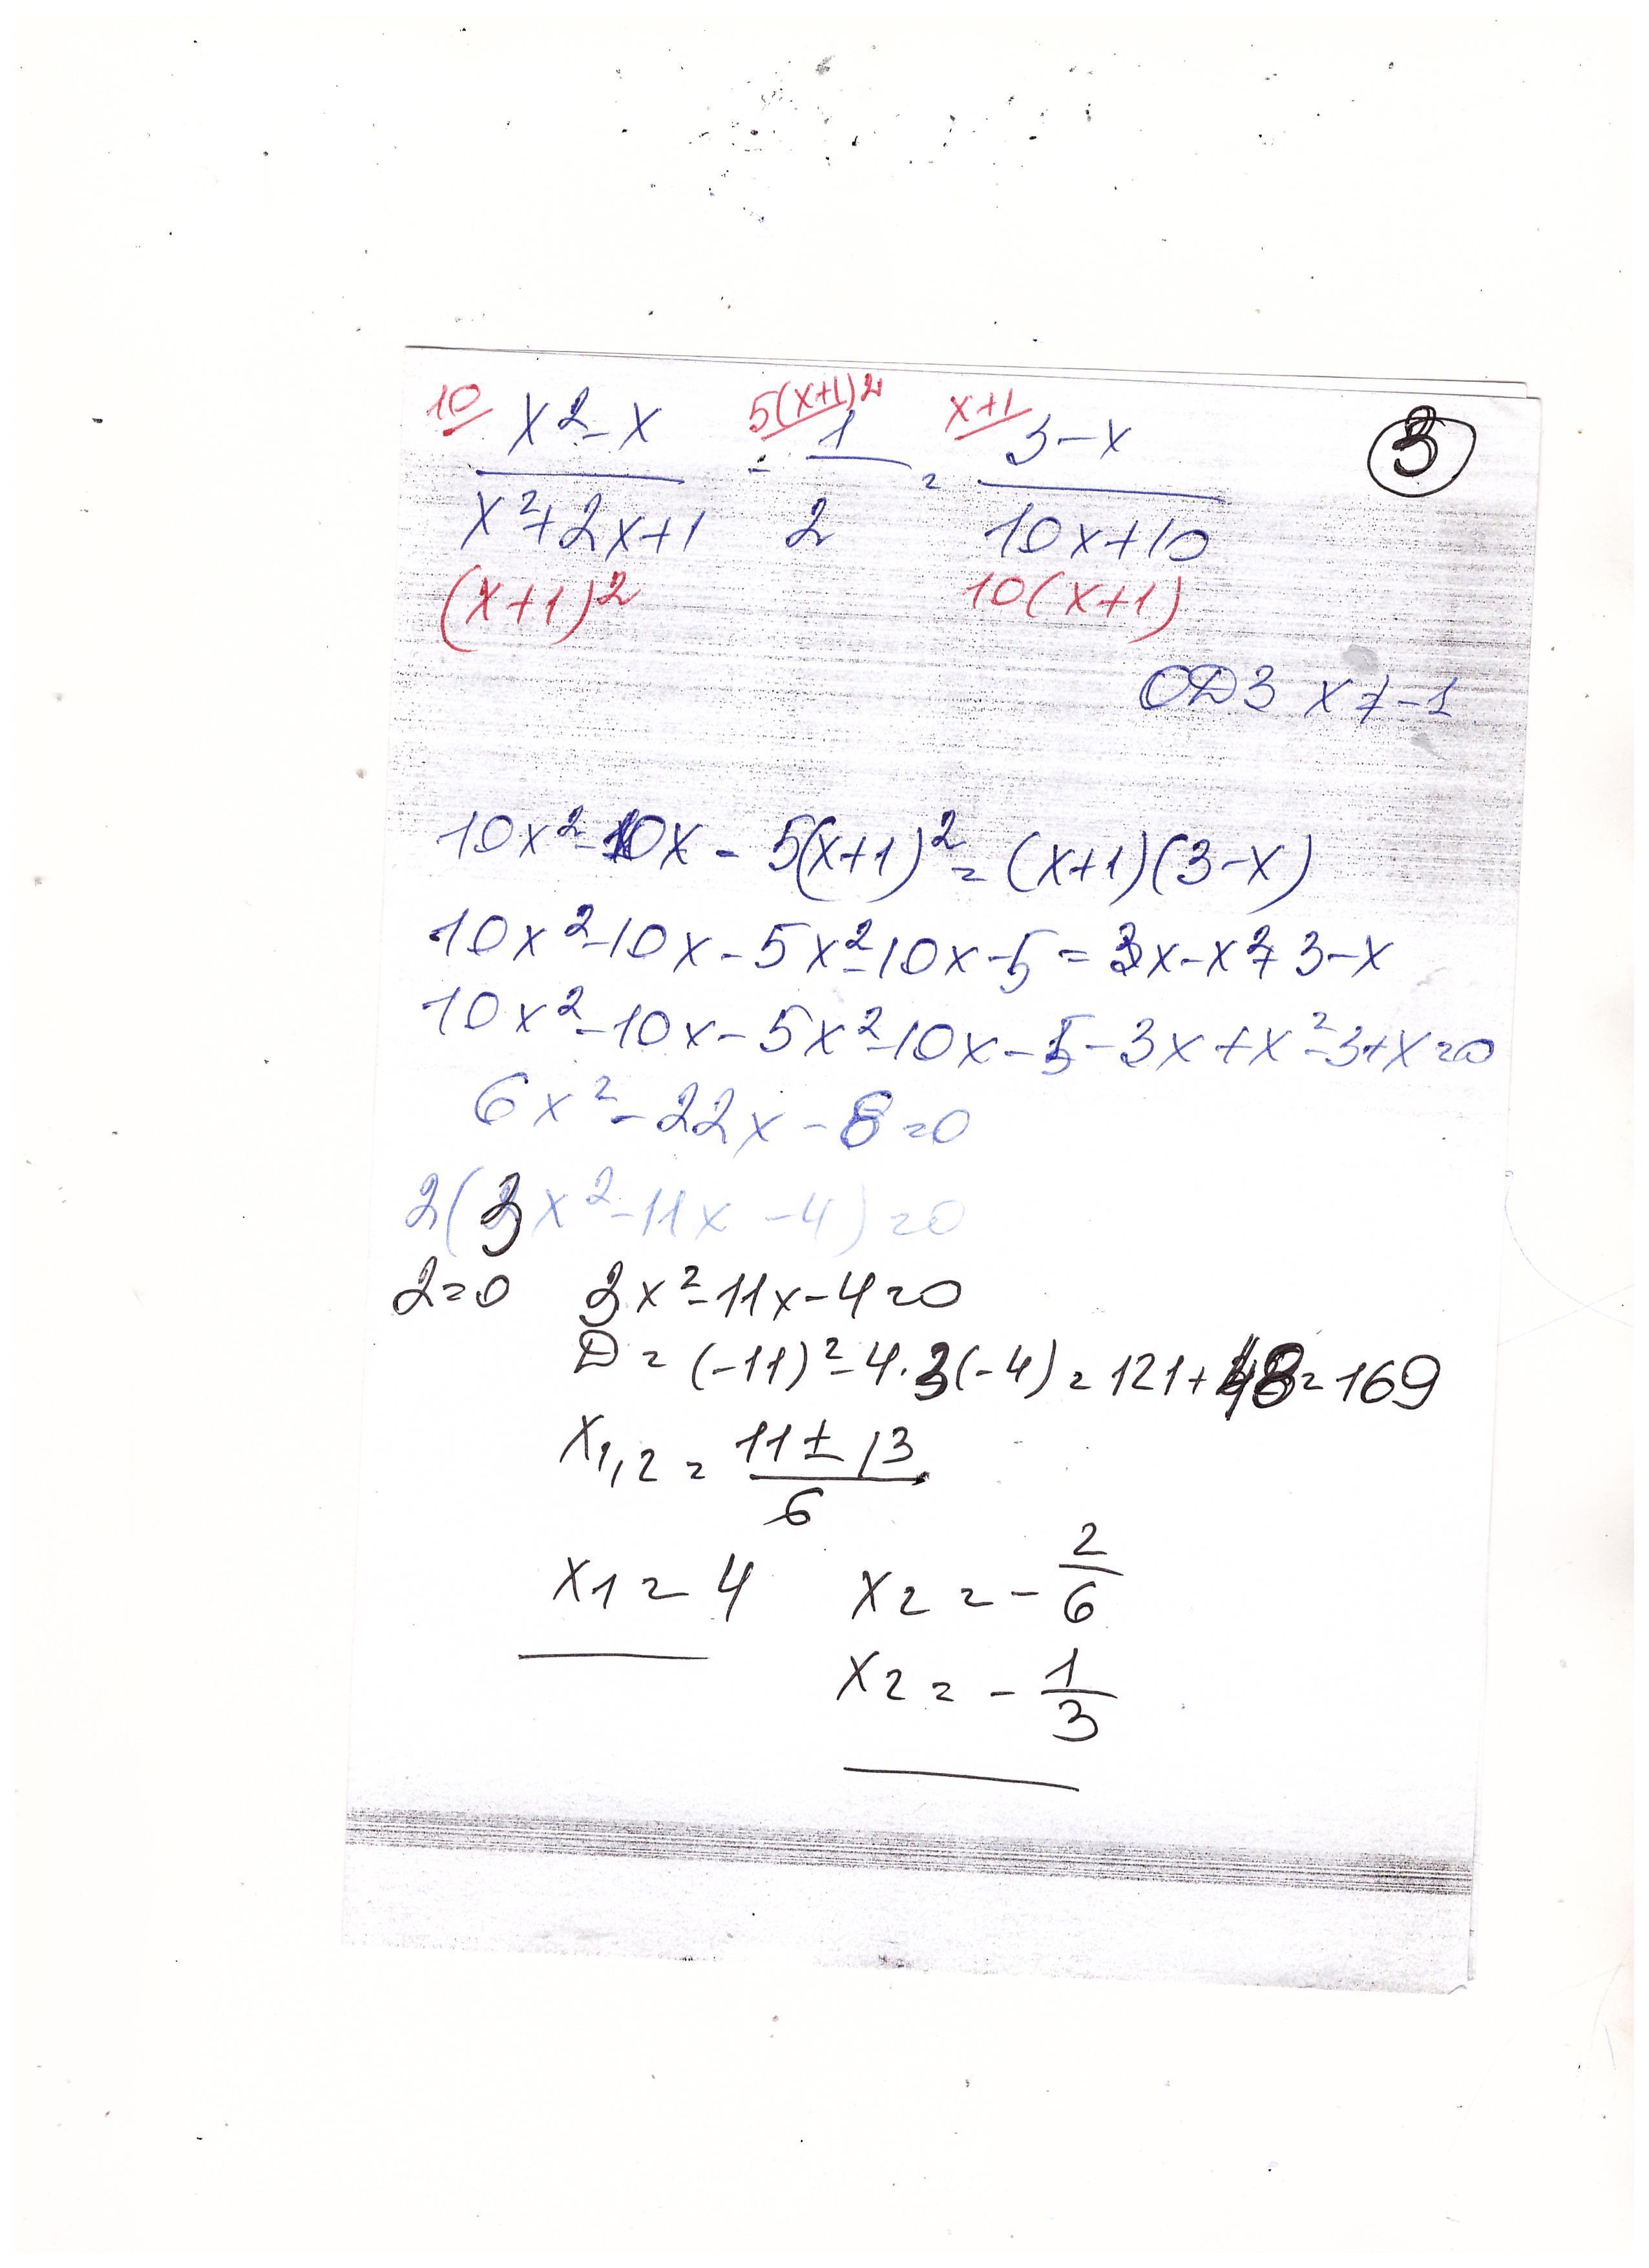 3
10 5(x+1)² x+1
(x²-x)/(x²+2x+1) - 1/2 = (3-x)/(10x+10)
(x+1)² 10(x+1)
ОДЗ x≠-1
10x²-10x-5(x+1)²=(x+1)(3-x)
10x²-10x-5x²-10x-5=3x-x²+3-x
10x²-10x-5x²-10x-5-3x+x²-3+x=0
6x²-22x-8=0
2(3x²-11x-4)=0
2=0 3x²-11x-4=0
D=(-11)²-4·3(-4)=121+48=169
x1,2=(11±13)/6
x1=4 x2=-2/6
x2=-1/3